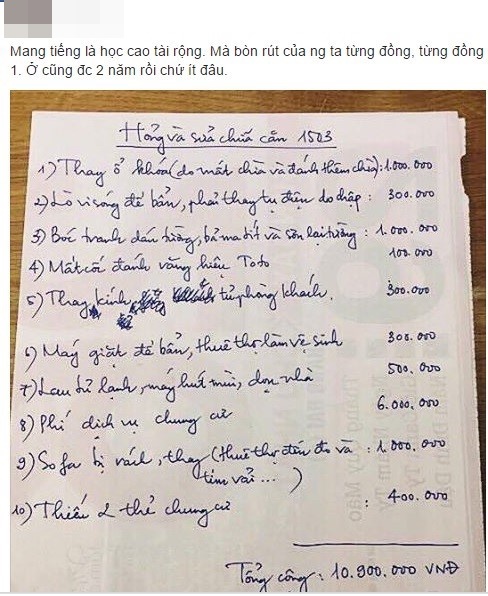 Mang tiếng là học cao tài rộng. Mà bòn rút của ng ta từng đồng, từng đồng
1. Ở cũng đc 2 năm rồi chứ ít đâu.
Hỏng và sửa chữa căn 1503
1) Thay ổ khóa (do mất chìa và đánh thêm chìa): 1.000.000
2) Lò vi sóng để bẩn, phải thay tụ điện do chập : 300.000
3) Bóc tranh dán tường, bả ma tít và sơn lại tường : 1.000.000
4) Mất cối đánh vàng hiệu Toto 100.000
5) Thay kính tủ phòng khách. 300.000
6) Máy giặt để bẩn, thuê thợ làm vệ sinh 300.000
7) Lau tủ lạnh, máy hút mùi, dọn nhà 500.000
8) Phí dịch vụ chung cư 6.000.000
9) Sofa bị rách, thay (thuê thợ đến đo và : 1.000.000
tìm vải ... )
10) Thiếu 2 thẻ chung cư : 400.000
Tổng cộng : 10.900.000 VNĐ